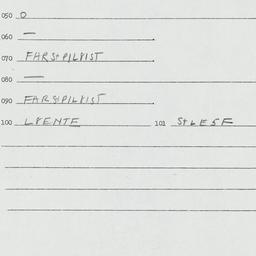 050 O
060 —
070 FARStPILVIST
080 —
090 FARStPILVIST
100 LVENTE 101 StLESF